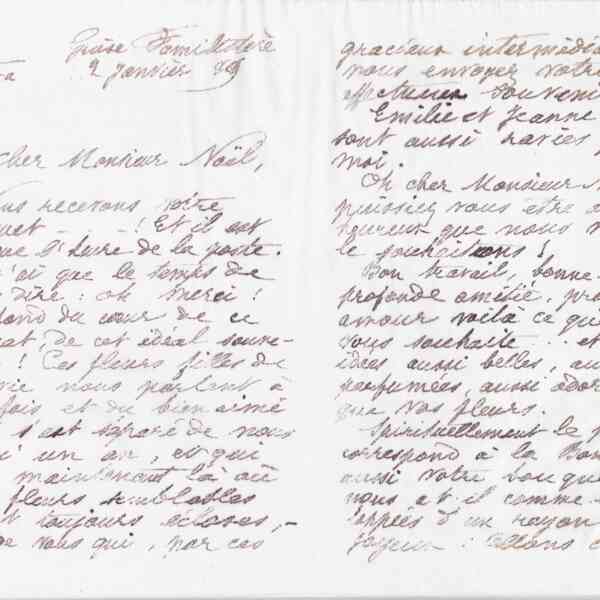 Guise Familistère
2 Janvier 89
cher Monsieur Noël,
Nous recevons votre
! Et il est
que l'heure de la poste.
que le temps de
dire : oh merci !
fond du cœur de ce
de cet idéal souve-
! Ces fleurs filles de
nous parlent à
fois et du bien aimé
s'est séparé de nous
un an, et qui
maintenant là où
fleurs semblables
toujours écloses, -
de vous qui, par ces
gracieux intermédia
nous envoyer votre
affectueux souveni
Emilie et Jeanne
sont aussi ravies
moi.
Oh cher Monsieur N
puissiez vous être a
heureux que nous v
le souhaitons !
Bon travail, bonne
profonde amitié, pro
amour voilà ce qu
vous souhaite .. et
idées aussi belles, au
parfumées, aussi ador
que vos fleurs.
Spirituellement le p
correspond à la Bon
aussi votre bouque
nous a t-il comme
d'un rayon
joyeux : Allons c